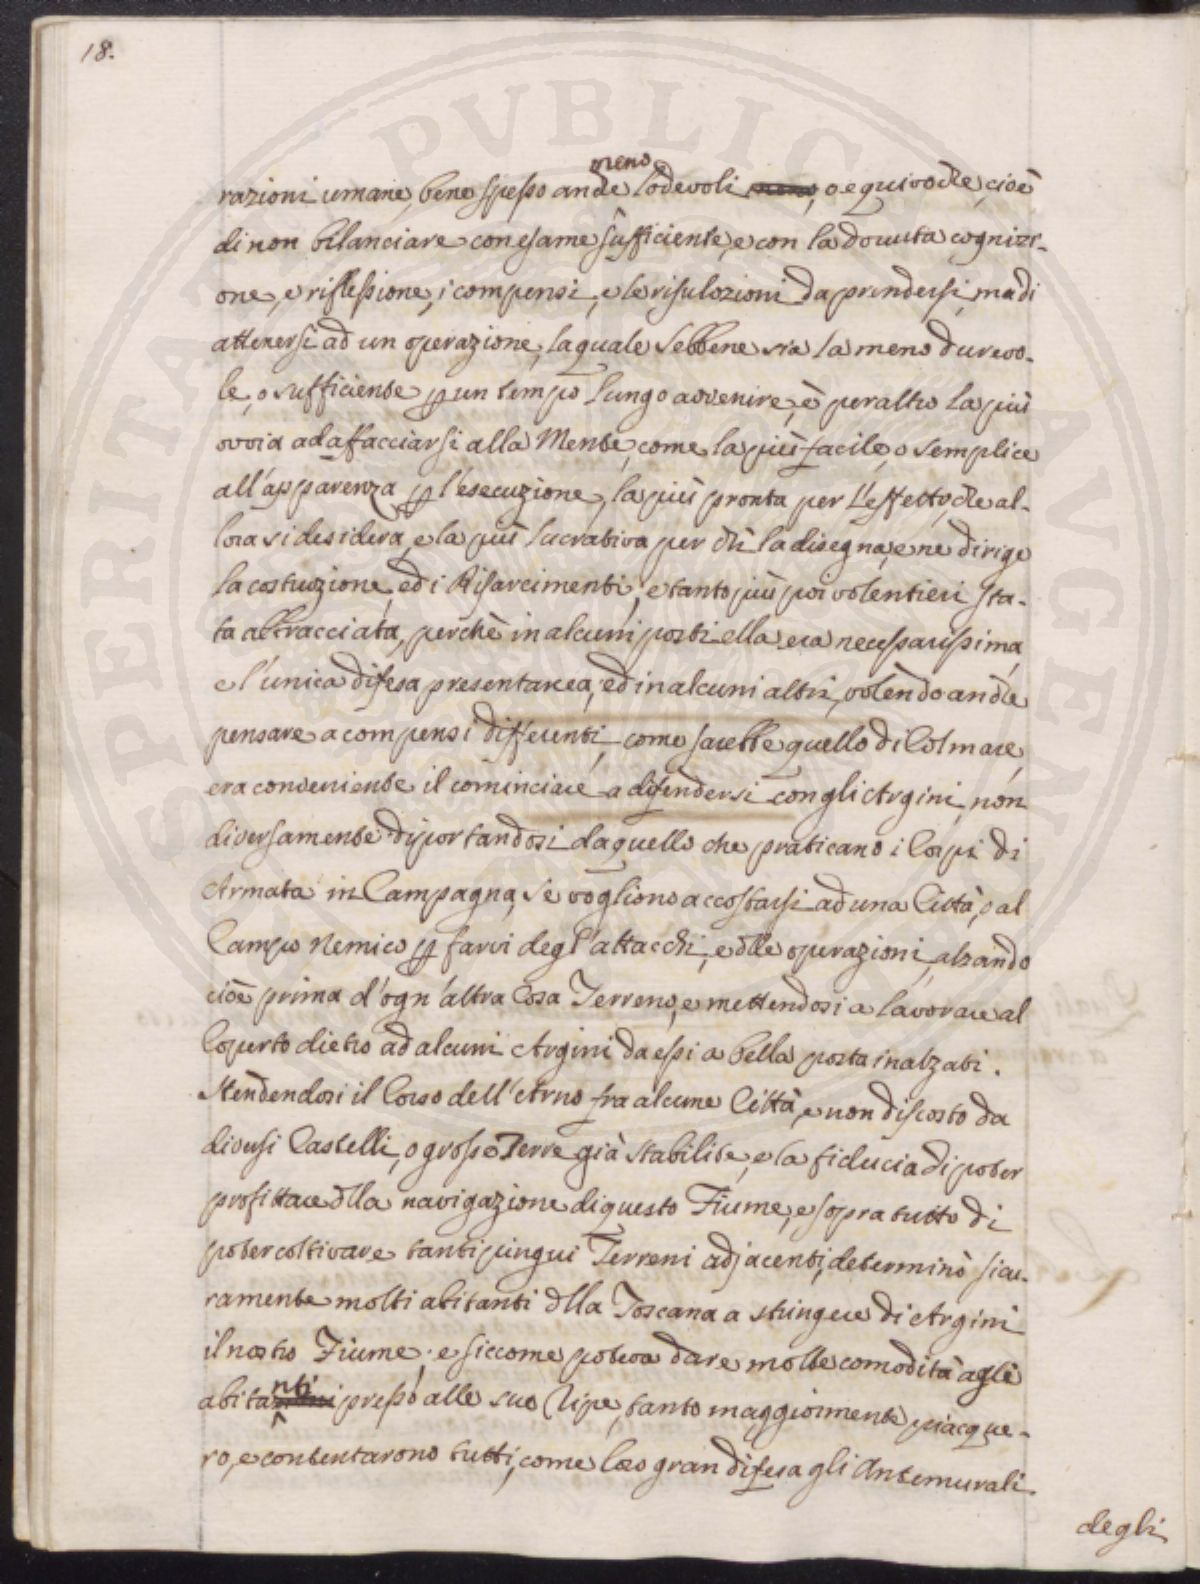 18.
meno
razioni umane, bene spesso anche lodevoli meno, o equivoche, cioè
di non bilanciare con esame sufficiente, e con la dovuta cognizi-
one, e riflessione, i compensi, e le risuluzioni da prendersi, ma di
attenersi ad un operazione, la quale sebbene sia la meno durevo-
le, o sufficiente p un tempo lungo avvenire, è peraltro la più
ovvia ad affacciarsi alla Mente, come la più facile, o semplice
all'apparenza p l'esecuzione, la più pronta per l'effetto, che al-
lora si desidera, e la più lucrativa per chi la disegna, e ne dirige
la costruzione, ed i Risarcimenti, e tanto più poi volentieri sta-
ta abbracciata, perchè in alcuni posti ella era necessarissima,
e l'unica difesa presentanea, ed in alcuni altri, volendo anche
pensare a compensi differenti, come sarebbe quello di Colmare,
era conveniente il cominciare a difendersi con gli Argini, non
diversamente diportandosi da quello che praticano i Corpi di
Armata in Campagna, se vogliono accostarsi ad una Città, o al
Campo Nemico p farvi degl'attacchi, e dlle operazioni, alzando
cioè prima d'ogn'altra Cosa Terreno, e mettendosi a lavorare al
Coperto dietro ad alcuni Argini da essi a bella posta inalzati.
Stendendosi il Corso dell'Arno fra alcune Città, e non discosto da
diversi Castelli, o grosse Terre già stabilite, e la fiducia di poter
profittare dlla navigazione di questo Fiume, e sopra tutto di
poter coltivare tanti pingui Terreni adjacenti, determinò sicu-
ramente molti abitanti dlla Toscana a stringere di Argini
il nostro Fiume; e siccome poteva dare molte comodità agli
nti
abitazioni presso alle sue Ripe, tanto maggiormente piacque-
ro, e contentarono tutti, come loro gran difesa gli Antemurali
degli
SPERITATE PUBLICA AUGENT